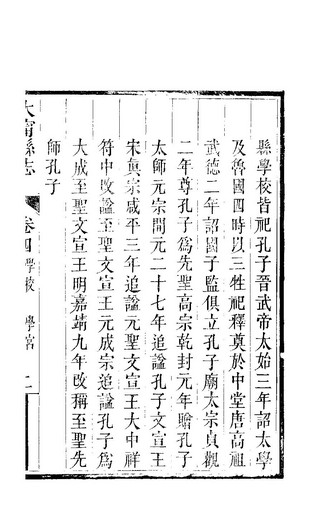 縣學校皆祀孔子晉武帝太始三年詔太學
及魯國四時以三牲祀釋奠於中堂唐高祖
武德二年詔國子監俱立孔子廟太宗貞觀
二年尊孔子爲先聖高宗乾封元年贈孔子
太師元宗開元二十七年追謚孔子文宣王
宋真宗咸平三年追謚元聖文宣王大中祥
符中改謚至聖文宣王元成宗追謚孔子爲
大成至聖文宣王明嘉靖九年改稱至聖先
師孔子
大甯縣志 卷四 學校 學宮 二